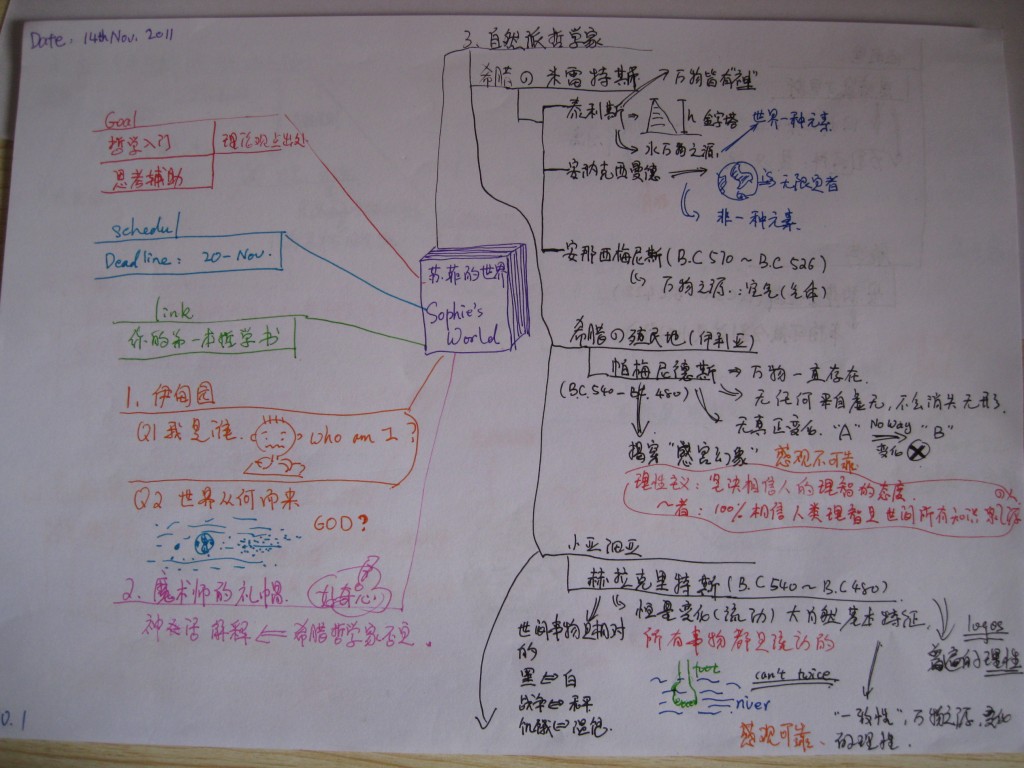 Date: 14th Nov. 2011
Goal
哲学入门
理论观点出处
思考辅助
schedul
Deadline: 20-Nov.
link
你的第一本哲学书
苏菲的世界
Sophie's
World
1. 伊甸园
Q1 我是谁. who am I?
Q2 世界从何而来
GOD?
2. 魔术师的礼帽. 好奇心
神话 解释 ⇐ 希腊哲学家否定.
3. 自然派哲学家
希腊の米雷特斯
泰利斯 → 万物皆有"神"
h 金字塔 → 世界一种元素
水万物之源.
安纳克西曼德
无限
非一种元素.
安那西梅尼斯 (B.C 570 ~ B.C 526)
万物之源: 空气(气体)
希腊の殖民地(伊利亚)
帕梅尼德斯 → 万物一直存在.
(B.C. 540 - B.C. 480)
无任何来自虚无, 不会消失无形.
无真正变化. "A" No way "B"
变化
揭穿"感官幻象" 感观不可靠
理性主义: 坚决相信人的理智的态度.
~者: 100%相信人类理智是世间所有知识泉源
小亚细亚
赫拉克里特斯 (B.C 540 ~ B.C 480)
恒量变化(流动) 大自然基本特征.
所有事物都是流动的
世间事物是相对
的
黑 ⇔ 白
战争 ⇔ 和平
饥饿 ⇔ 温饱.
foot
can't twice
river
感观可靠.
logos
普遍的理性
"一致性", 万物之源, 变化
的理性.
0.1